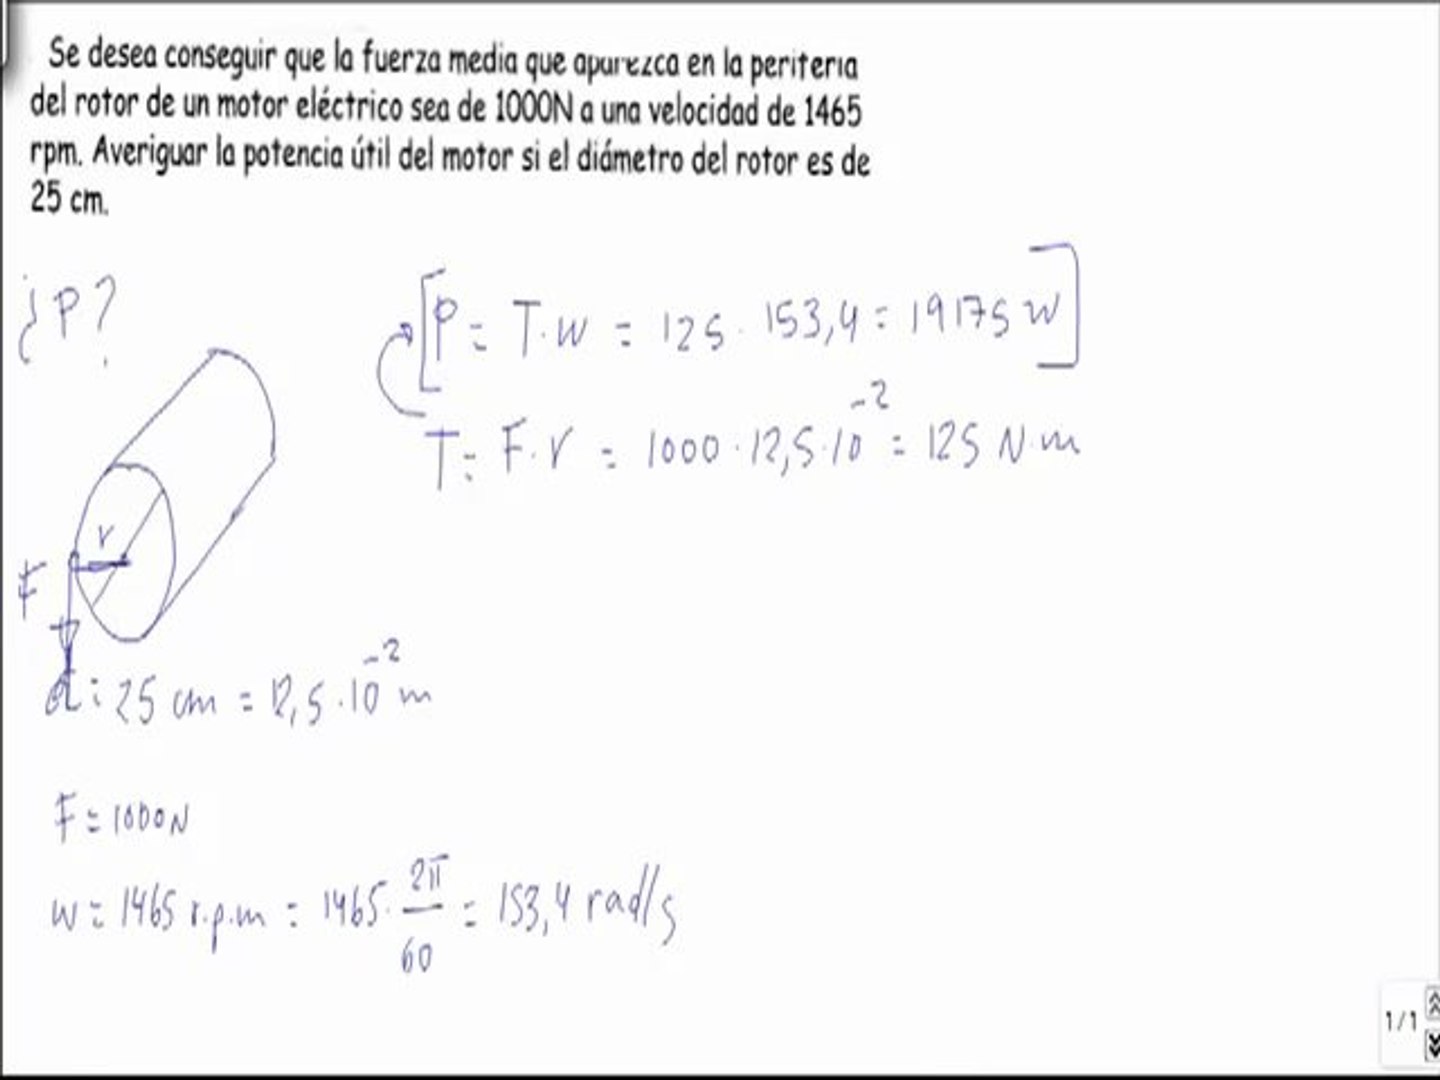 Se desea conseguir que la fuerza media que aparezca en la periferia
del rotor de un motor eléctrico sea de 1000N a una velocidad de 1465
rpm. Averiguar la potencia útil del motor si el diámetro del rotor es de
25 cm.
¿P?
[P = T·w = 125 · 153,4 = 19175 w]
T = F·r = 1000 · 12,5·10⁻² = 125 N·m
r
F
d: 25 cm = 12,5·10⁻² m
F = 1000N
w = 1465 r.p.m = 1465 · 2π/60 = 153,4 rad/s
1/1